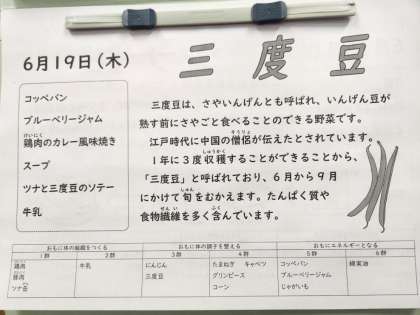 6月19日(木)
三度豆
コッペパン
ブルーベリージャム
鶏肉のカレー風味焼き
スープ
ツナと三度豆のソテー
牛乳
三度豆は、さやいんげんとも呼ばれ、いんげん豆が
熟す前にさやごと食べることのできる野菜です。
江戸時代に中国の僧侶が伝えたとされています。
1年に3度収穫することができることから、
「三度豆」と呼ばれており、6月から9月
にかけて旬をむかえます。たんぱく質や
食物繊維を多く含んでいます。
おもに体の組織をつくる おもに体の調子を整える おもにエネルギーとなる
1群 2群 3群 4群 5群 6群
鶏肉 牛乳 にんじん たまねぎ キャベツ コッペパン 綿実油
豚肉 三度豆 グリンピース ブルーベリージャム
ツナ缶 コーン じゃがいも